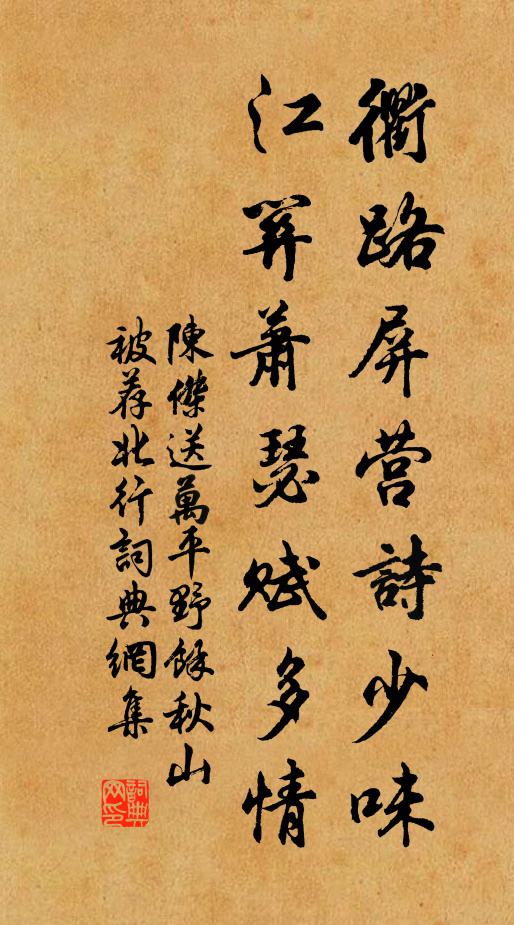 衢路屏营詩少味
江關蕭瑟賦多情
陳傑送萬平野餘秋山
被荐北行詞典網集
詞典
网印